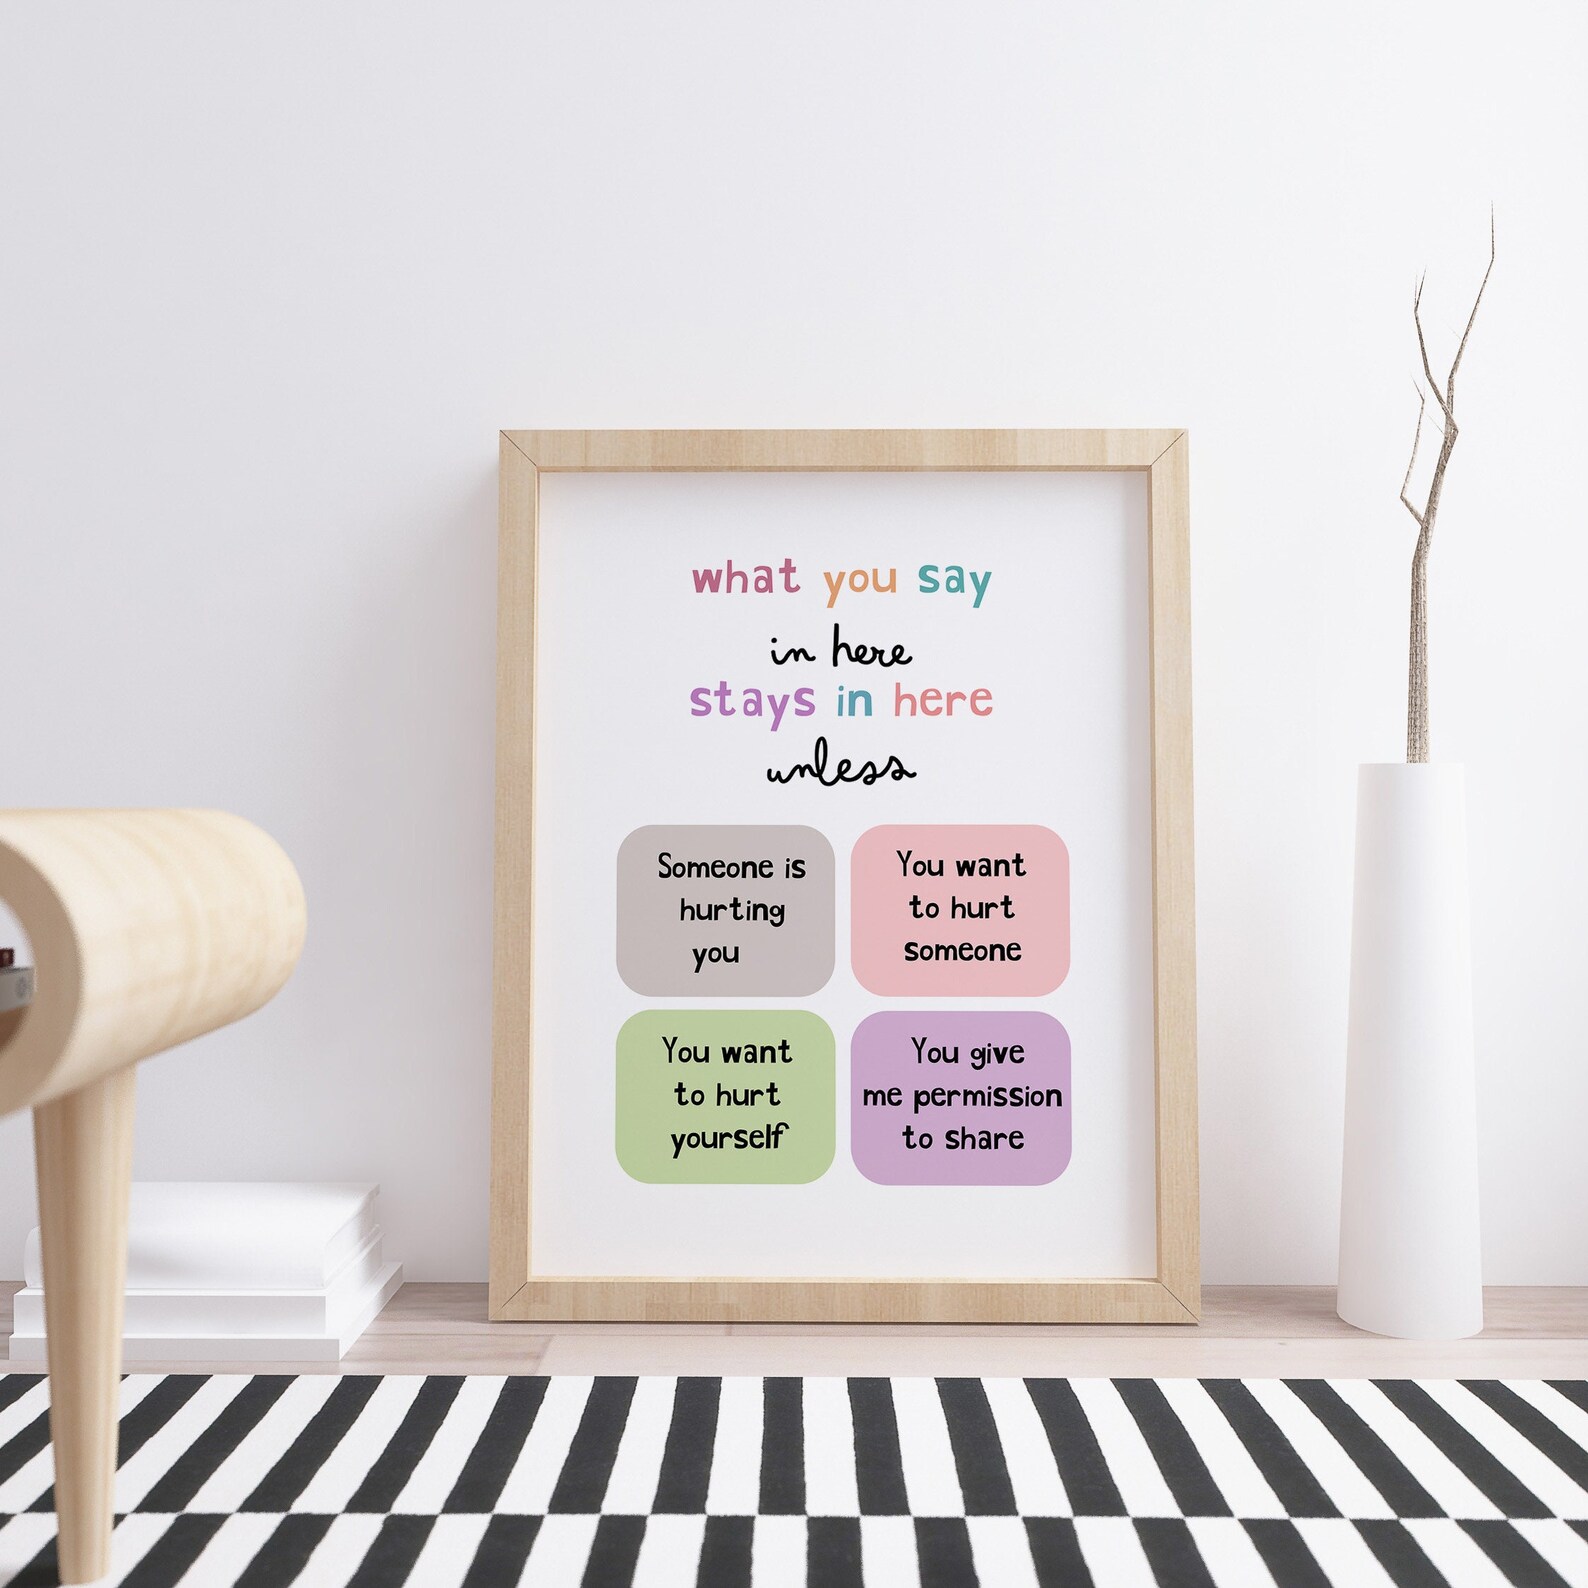 what you say
in here
stays in here
unless
Someone is
hurting
you
You want
to hurt
someone
You want
to hurt
yourself
You give
me permission
to share